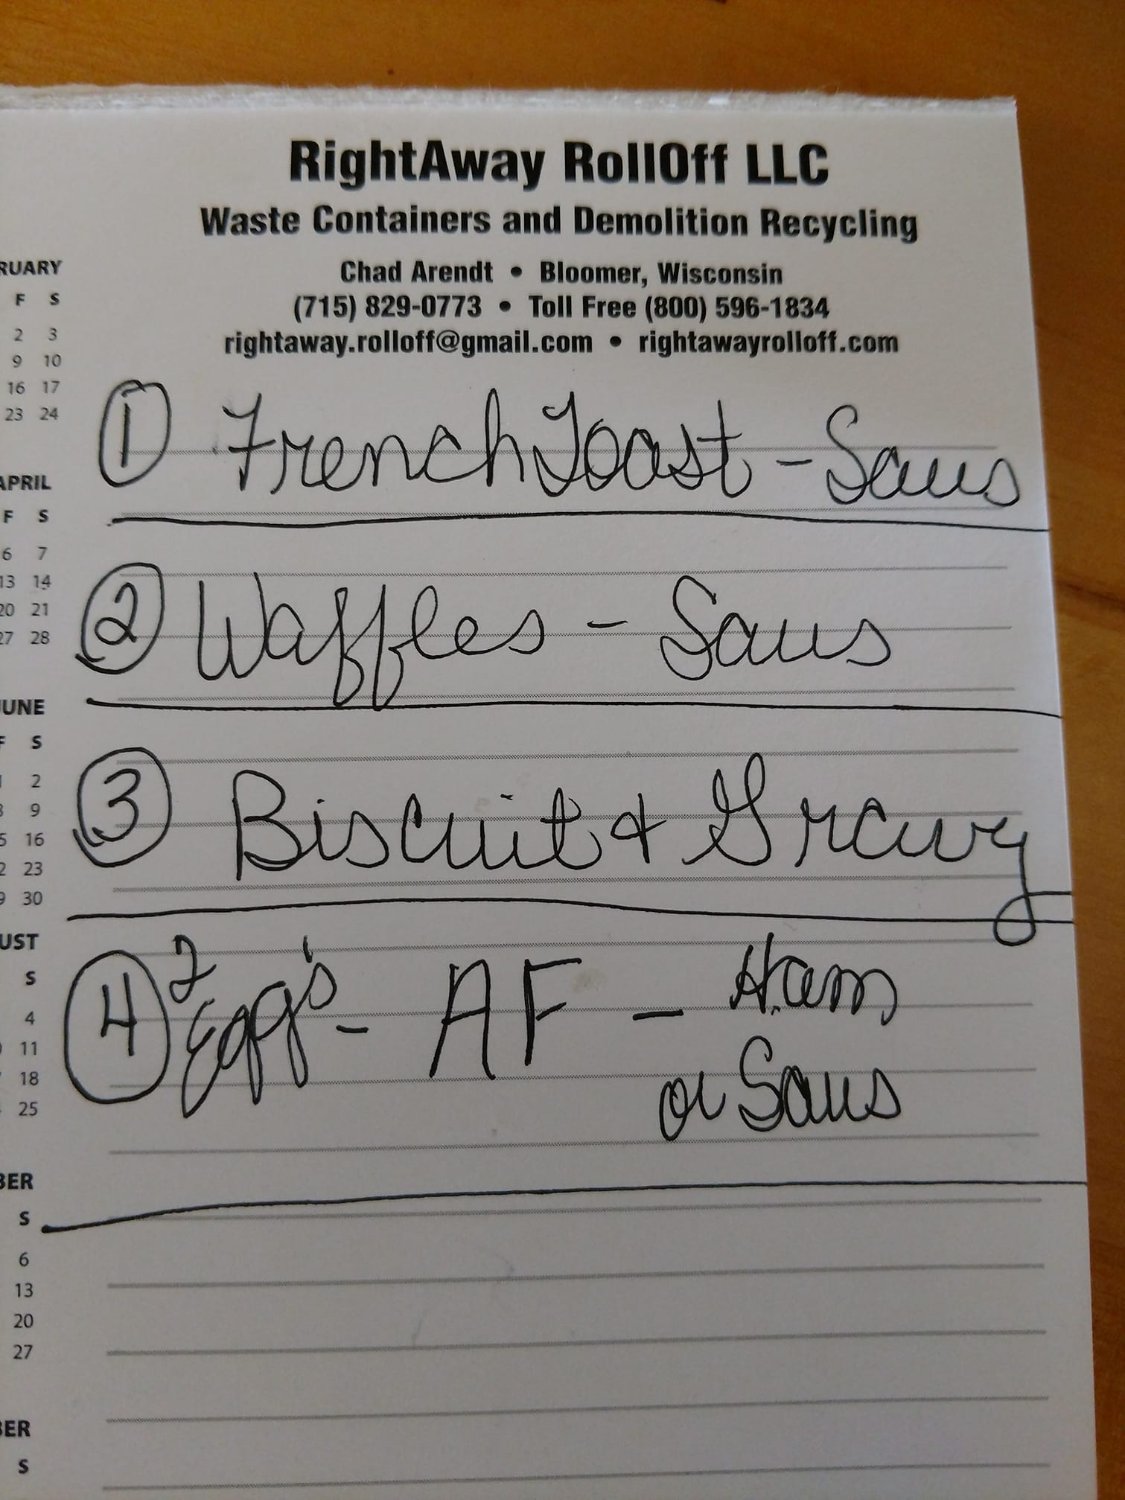 RightAway RollOff LLC
Waste Containers and Demolition Recycling
Chad Arendt • Bloomer, Wisconsin
(715) 829-0773 • Toll Free (800) 596-1834
rightaway.rolloff@gmail.com • rightawayrolloff.com
RUARY
F S
2 3
9 10
16 17
23 24
APRIL
F S
6 7
13 14
20 21
27 28
JUNE
F S
1 2
8 9
15 16
22 23
29 30
UST
S
4
11
18
25
BER
S
6
13
20
27
BER
S
1 French Toast - Saus
2 Waffles - Saus
3 Biscuit & Gravy
4 2 Egg's - AF - Ham
or Saus